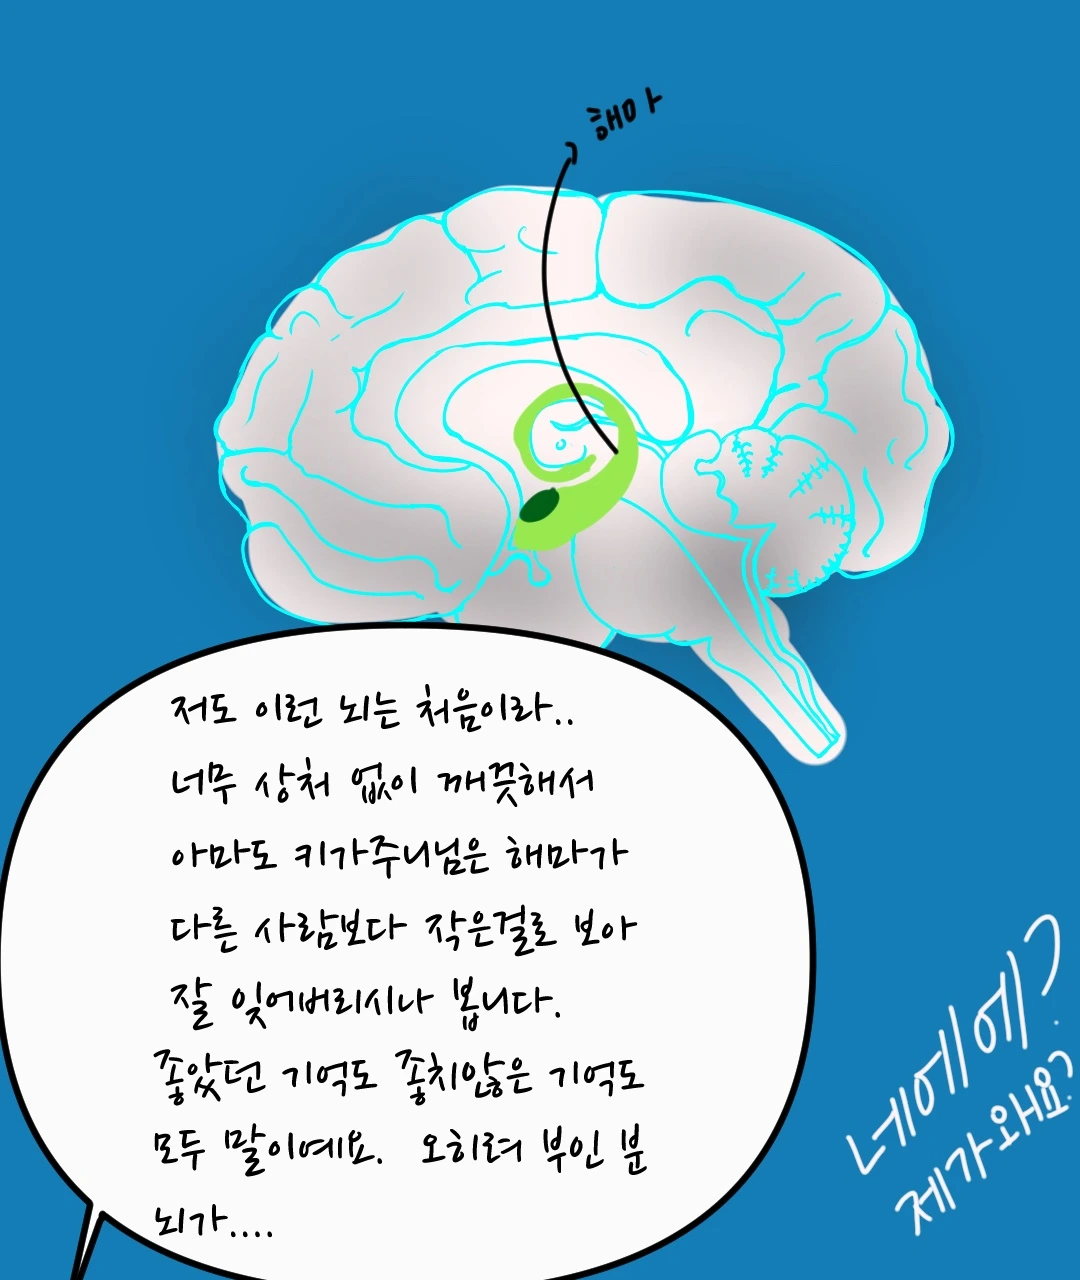 해마
저도 이런 뇌는 처음이라..
너무 상처 없이 깨끗해서
아마도 키가주니님은 해마가
다른 사람보다 작은걸로 보아
잘 잊어버리시나 봅니다.
좋았던 기억도 좋치않은 기억도
모두 말이예요. 오히려 부인 분
뇌가....
네에에?
제가 왜요?